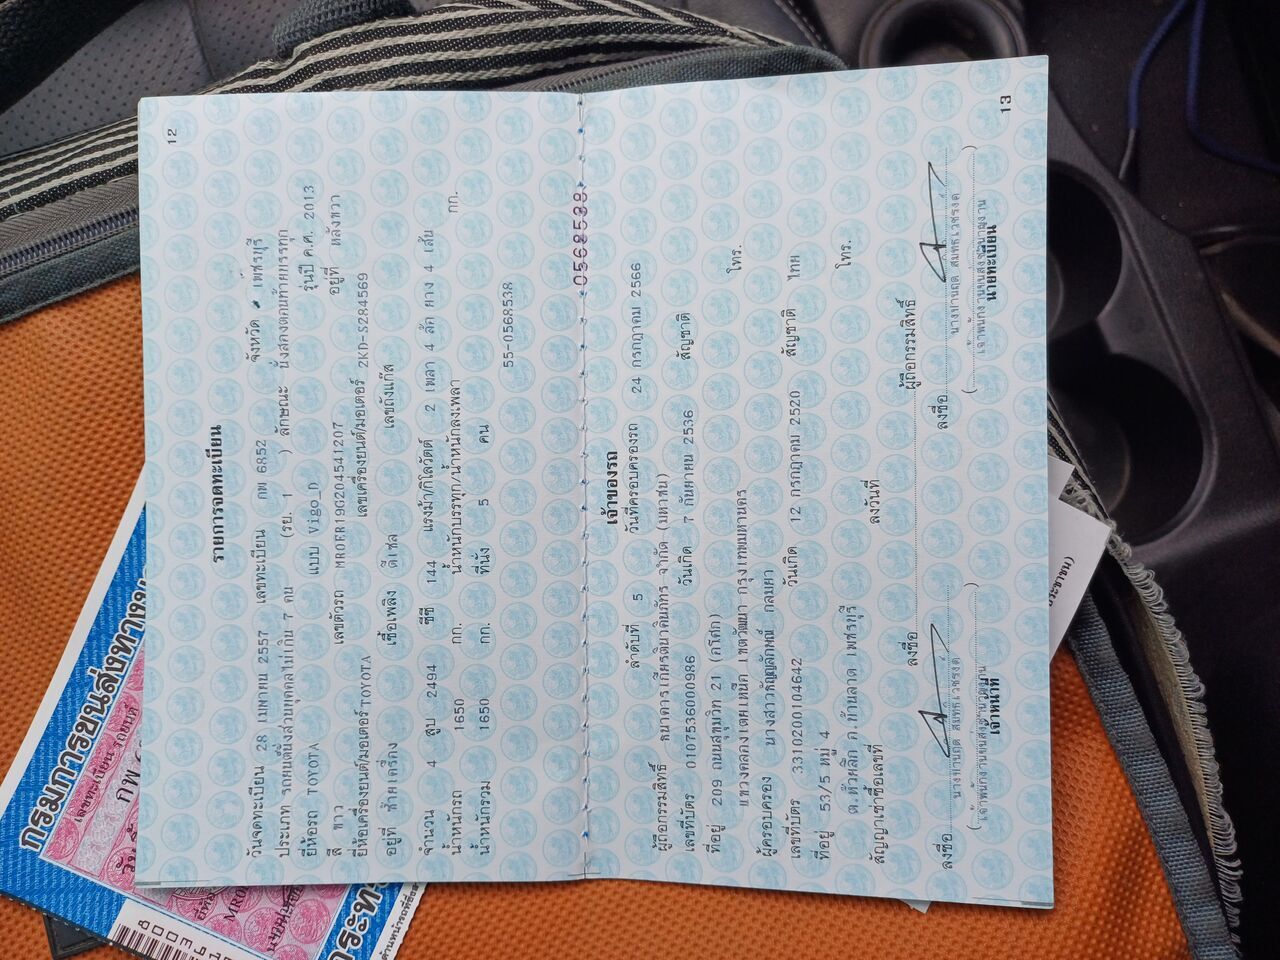 12
รายการจดทะเบียน
วันจดทะเบียน 28 เมษายน 2557 เลขทะเบียน กพ 6852 จังหวัด เพชรบุรี
ประเภท รถยนต์นั่งส่วนบุคคลไม่เกิน 7 คน (รย. 1 ) ลักษณะ นั่งสองตอนท้ายบรรทุก
ยี่ห้อรถ TOYOTA แบบ Vigo_D รุ่นปี ค.ศ. 2013
สี ขาว เลขตัวรถ MR0ER19G204541207 อยู่ที่ หลังขวา
ยี่ห้อเครื่องยนต์/มอเตอร์ TOYOTA เลขเครื่องยนต์/มอเตอร์ 2KD-S284569
อยู่ที่ ซ้ายเครื่อง เชื้อเพลิง ดีเซล เลขถังแก๊ส
จำนวน 4 สูบ 2494 ซีซี 144 แรงม้า/กิโลวัตต์ 2 เพลา 4 ล้อ ยาง 4 เส้น
น้ำหนักรถ 1650 กก. น้ำหนักบรรทุก/น้ำหนักลงเพลา กก.
น้ำหนักรวม 1650 กก. ที่นั่ง 5 คน
55-0568538
0568538
เจ้าของรถ
ลำดับที่ 5 วันที่ครอบครองรถ 24 กรกฎาคม 2566
ผู้ถือกรรมสิทธิ์ ธนาคารเกียรตินาคินภัทร จำกัด (มหาชน)
เลขที่บัตร 0107536000986 วันเกิด 7 กันยายน 2536 สัญชาติ
ที่อยู่ 209 ถนนสุขุมวิท 21 (อโศก)
แขวงคลองเตยเหนือ เขตวัฒนา กรุงเทพมหานคร โทร.
ผู้ครอบครอง นางสาวธัญญลักษณ์
เลขที่บัตร 3310200104642 วันเกิด 12 กรกฎาคม 2520 สัญชาติ ไทย
ที่อยู่ 53/5 หมู่ 4
อ.บ้านลาด เพชรบุรี โทร.
สัญญาเช่าซื้อเลขที่ ลงวันที่
ลงชื่อ ผู้ถือกรรมสิทธิ์
ลงชื่อ ลงชื่อ
เจ้าหน้าที่ นายทะเบียน
13
กรมการขนส่งทางบก
เลขทะเบียน รถยนต์
กพ